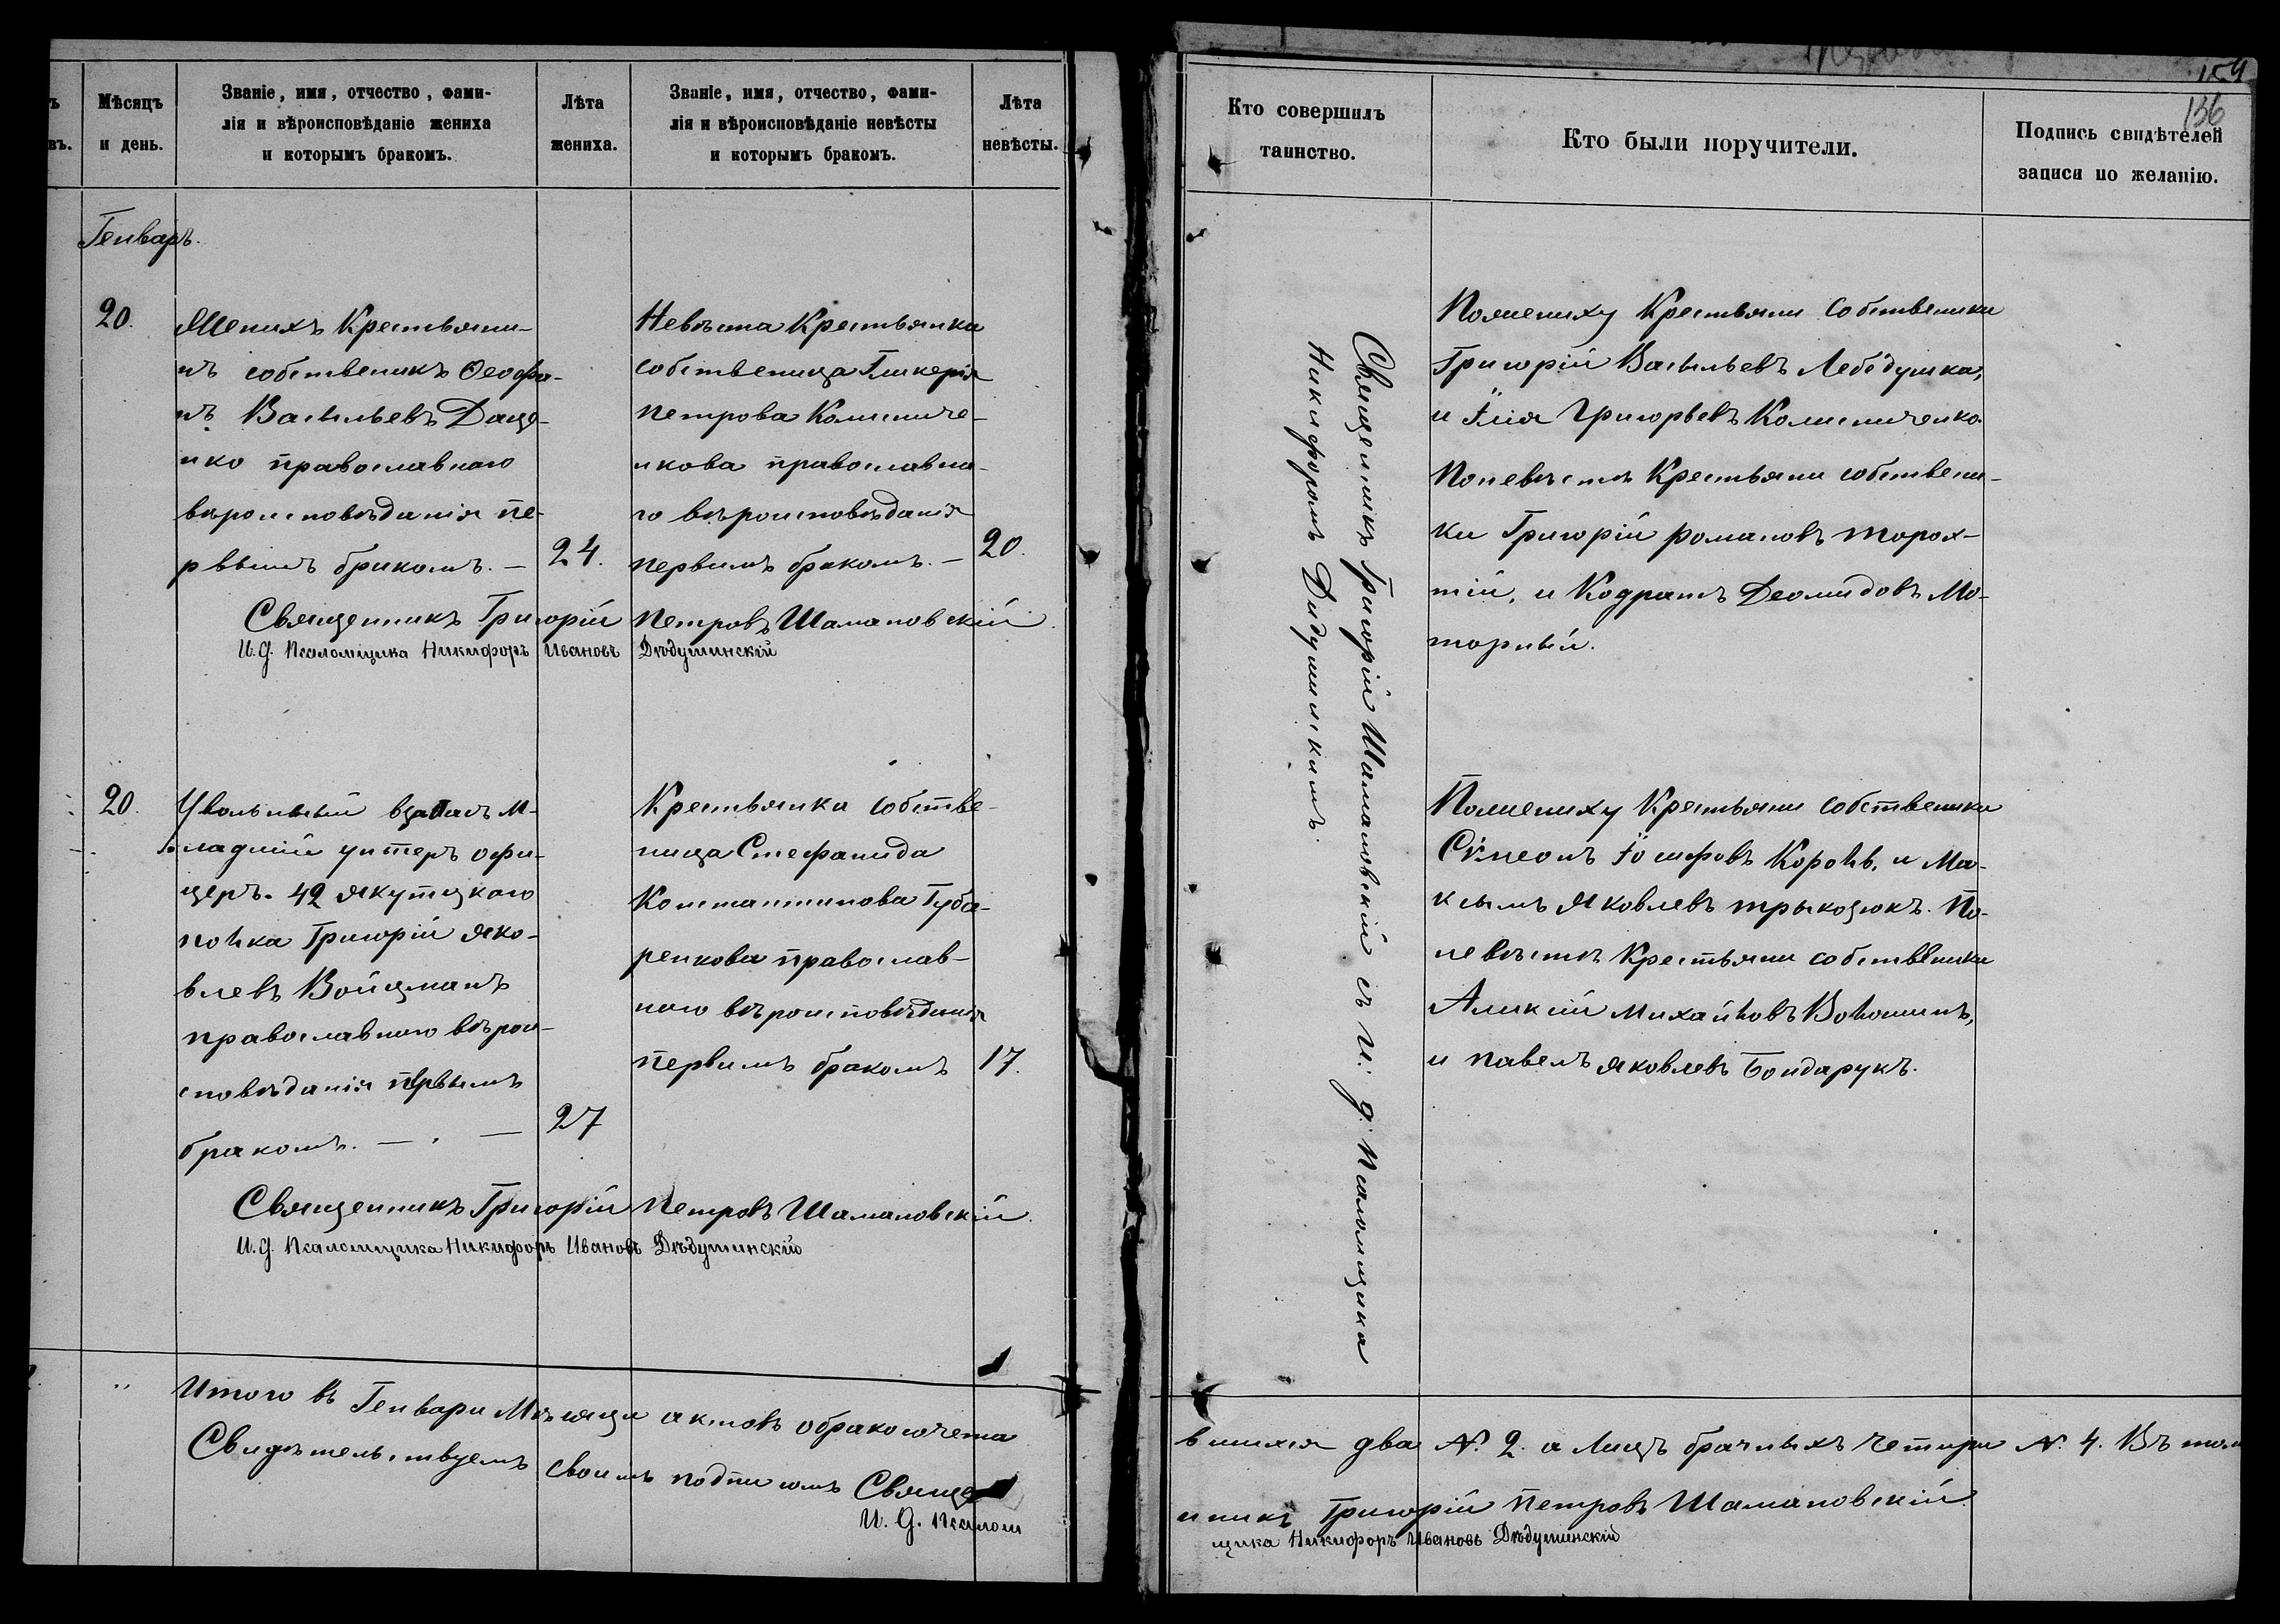 Мѣсяцъ
и день.
Званіе, имя, отчество, фами-
лія и вѣроисповѣданіе жениха
и которымъ бракомъ.
Лѣта
жениха.
Званіе, имя, отчество, фами-
лія и вѣроисповѣданіе невѣсты
и которымъ бракомъ.
Лѣта
невѣсты.
Генваръ.
20.
Женихъ Крестьяни-
нъ собственикъ Ѳеофа-
нъ Васильевъ Даце-
нко православного
вѣроисповѣданія пе-
рвымъ бракомъ. —
24.
Невѣста Крестьянка
собственица Гликерія
Петрова Колисниче-
нкова православна-
го вѣроисповѣданія
первимъ бракомъ. —
20.
Священникъ Григорій Петровъ Шамановскій
И. д. Псаломщика Никифоръ Ивановъ Дѣдушинскій
20.
Увольный взапасъ М-
ладшій унтеръ офи-
церъ. 42 Якутцкого
полка Григорій Яко-
влевъ Войцманъ
православного вѣрои-
сповѣданія первымъ
бракомъ. — . —
27
Крестьянка собстве-
ница Стефанида
Константинова Губа-
ренкова православ-
ного вѣроисповѣданія
первимъ бракомъ
17.
Священникъ Григорій Петровъ Шамановскій.
И. д. Псаломщика Никифоръ Ивановъ Дѣдушинскій
Итого въ Генвари Мѣсяци актовъ обракосочета
Свидѣтельствуемъ своимъ подписомъ Свяще
И. д. Псалом
159
136
Кто совершилъ
таинство.
Кто были поручители.
Подпись свидѣтелей
записи по желанію.
Священникъ Григорій Шамановскій съ И: д: Псаломщика
Никифоромъ Дидушинскимъ.
Пожениху Крестьяни Собственики
Григорій Васильевъ Лебедушка,
и Илія Григорьевъ Колисниченко.
Поневѣстѣ Крестьяни собствени-
ки Григорій Романовъ Торох-
тій, и Кодратъ Деомидовъ Мо-
торный.
Пожениху Крестьяни собственики
Сѵмеонъ Іосифовъ Король, и Ма-
ксымъ Яковлевъ Трыкозюкъ. По-
невѣстѣ Крестьяни собственики
Алексій Михайловъ Волошинъ,
и Павелъ Яковлевъ Бондарукъ.
вшихся два №. 2. а Лицъ брачныхъ Четири №. 4. Въ том
нникъ Григорій Петровъ Шамановскій.
щика Никифоръ Ивановъ Дѣдушинскій